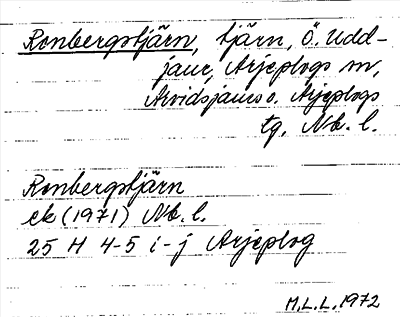 Renbergstjärn, tjärn, Ö. Udd-
jaur, Arjeplogs sn,
Arvidsjaurs o. Arjeplogs
tg, Nb. l.
Renbergstjärn
ek (1971) Nb. l.
25 H 4-5 i-j Arjeplog
M.L.L. 1972